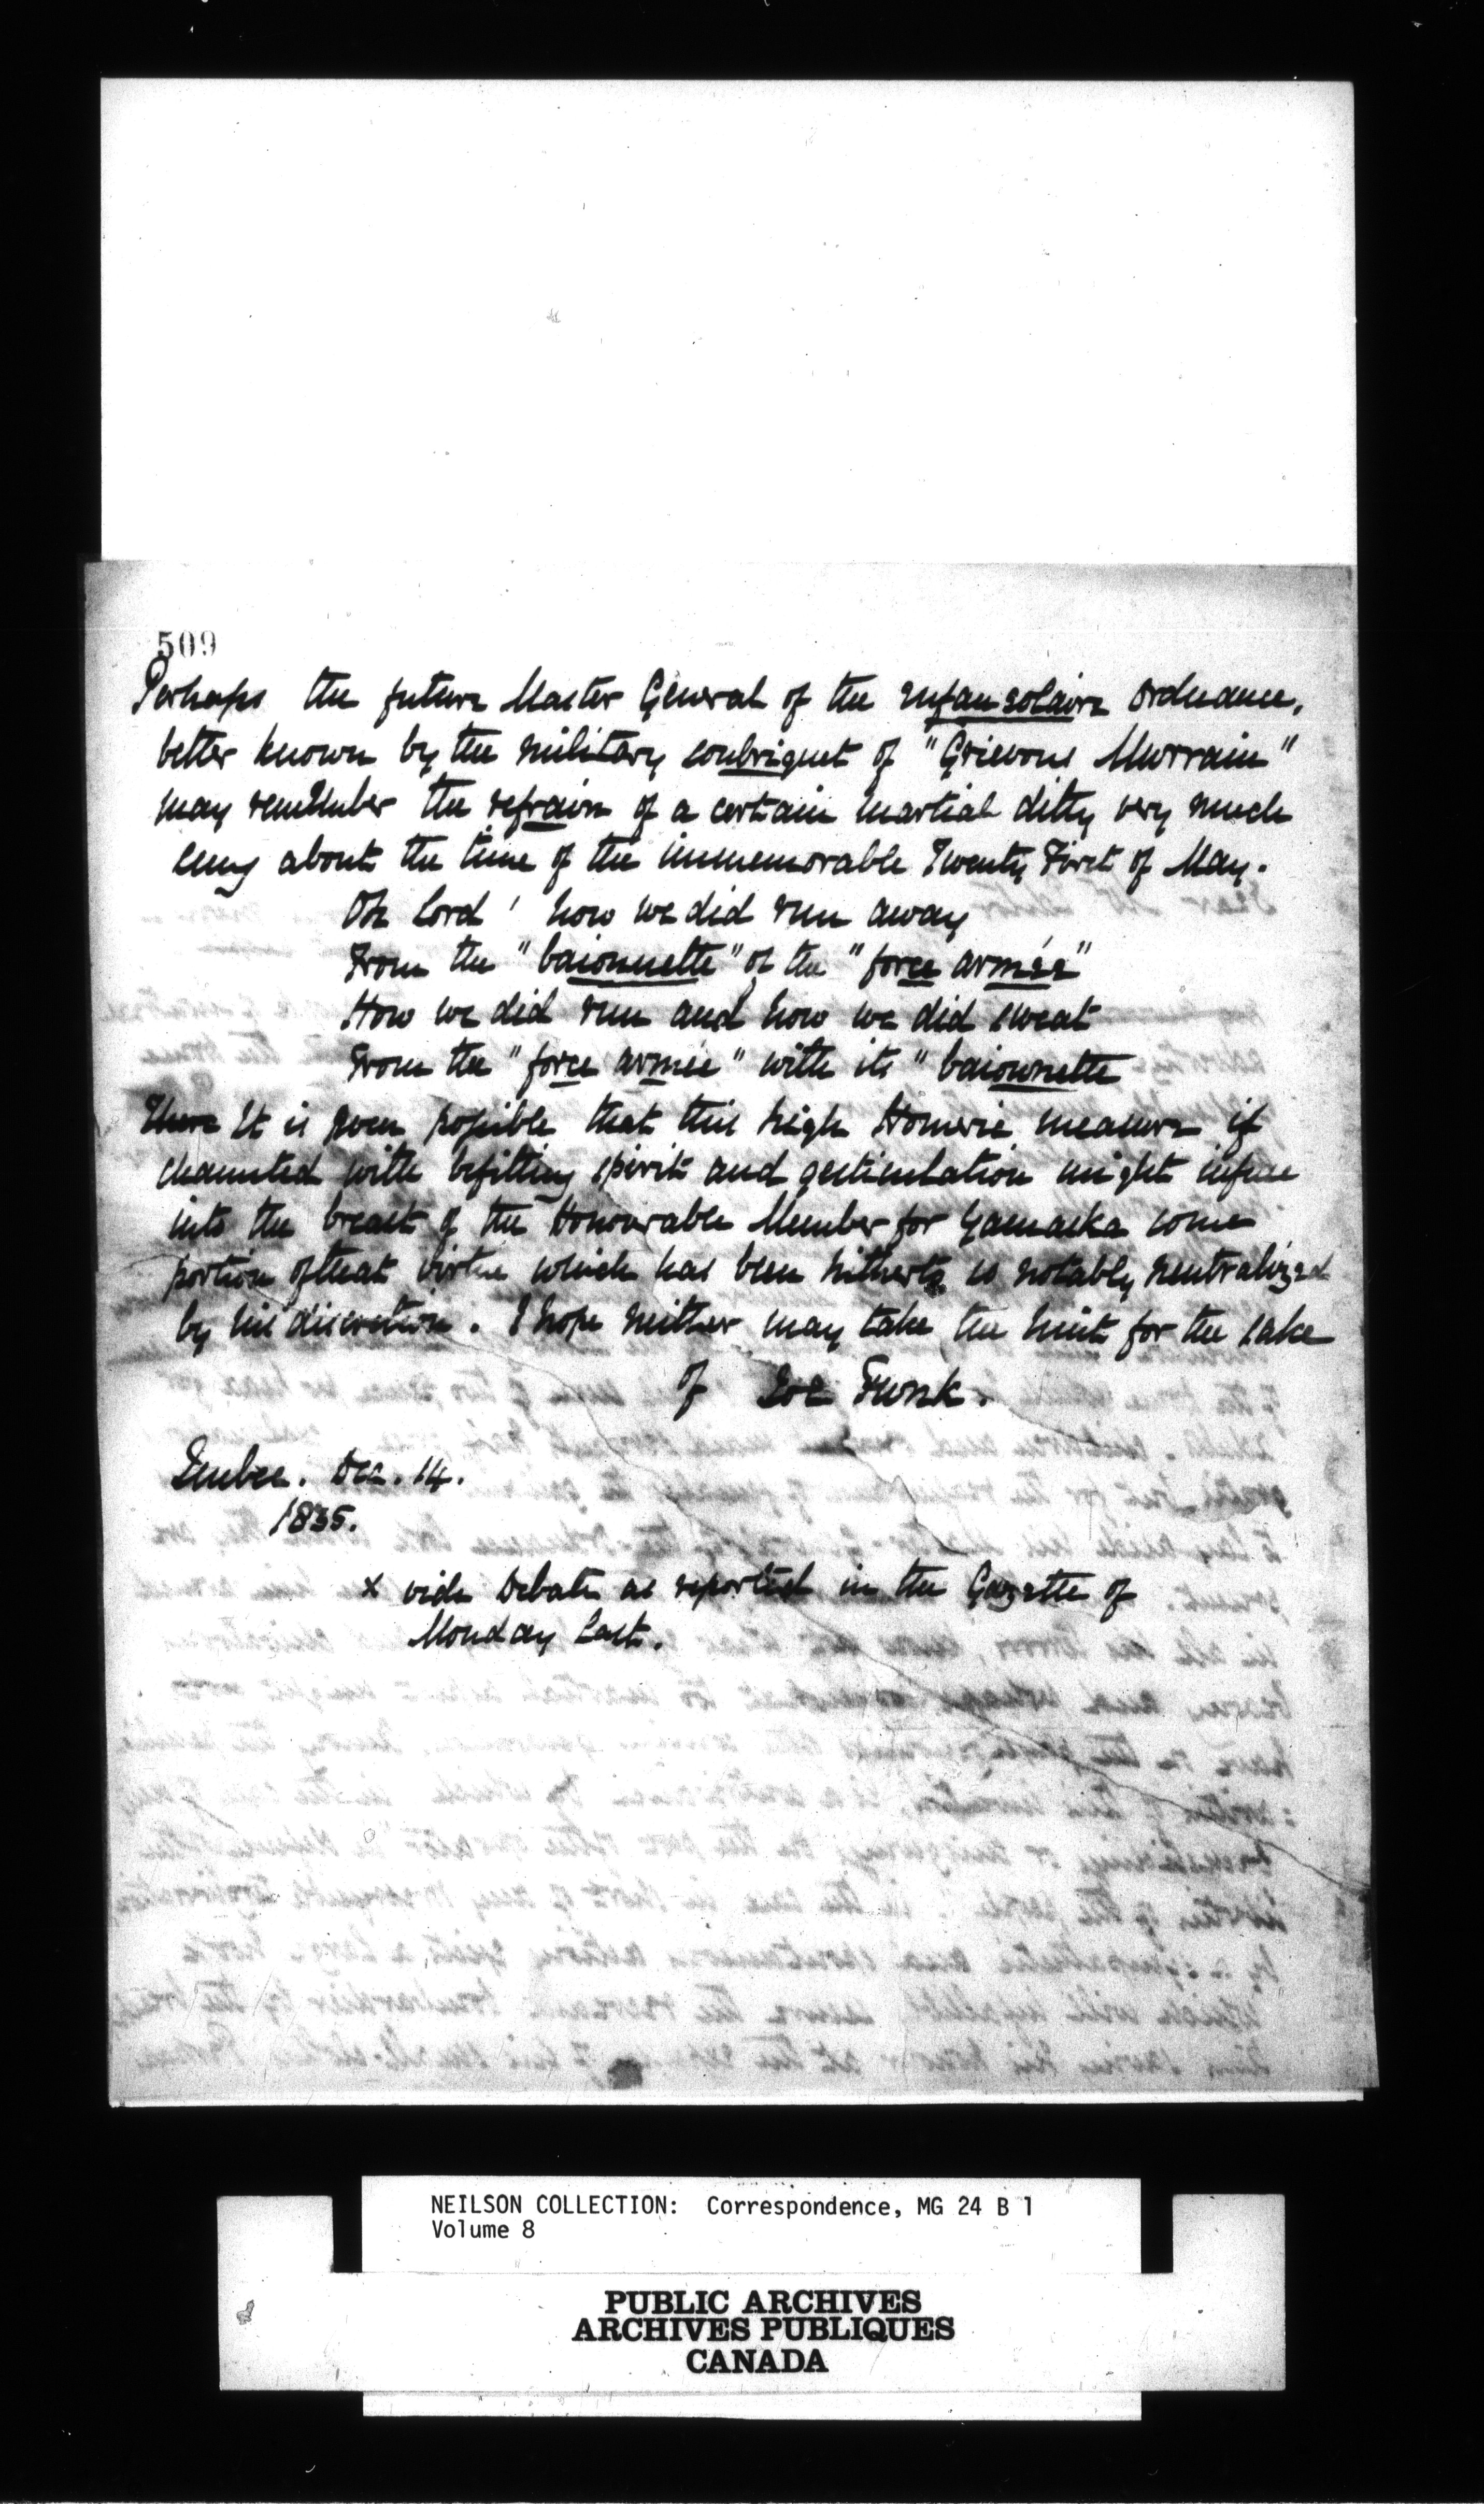 509
Perhaps the future Master General of the enfansolaire Ordnance,
better known by the military soubriquet of "Grievous Murrain"
may remember the refrain of a certain martial ditty very much
sung about the time of the immemorable Twenty First of May.
Oh Lord! how we did run away
From the "baionnette" of the "force armée"
How we did run and how we did sweat
From the "force armée" with its "baionnette
There It is even possible that this high Homeric measure if
chaunted with befitting spirit and gesticulation might infuse
into the breast of the Honourable Member for Yamaska some
portion of that virtue which has been hitherto so notably neutralized
by his discretion. I hope neither may take the hint for the sake
of Funk.
Dec. 14.
1835.
x vide Debate as reported in the Gazette of
Monday last.
NEILSON COLLECTION: Correspondence, MG 24 B 1
Volume 8
PUBLIC ARCHIVES
ARCHIVES PUBLIQUES
CANADA